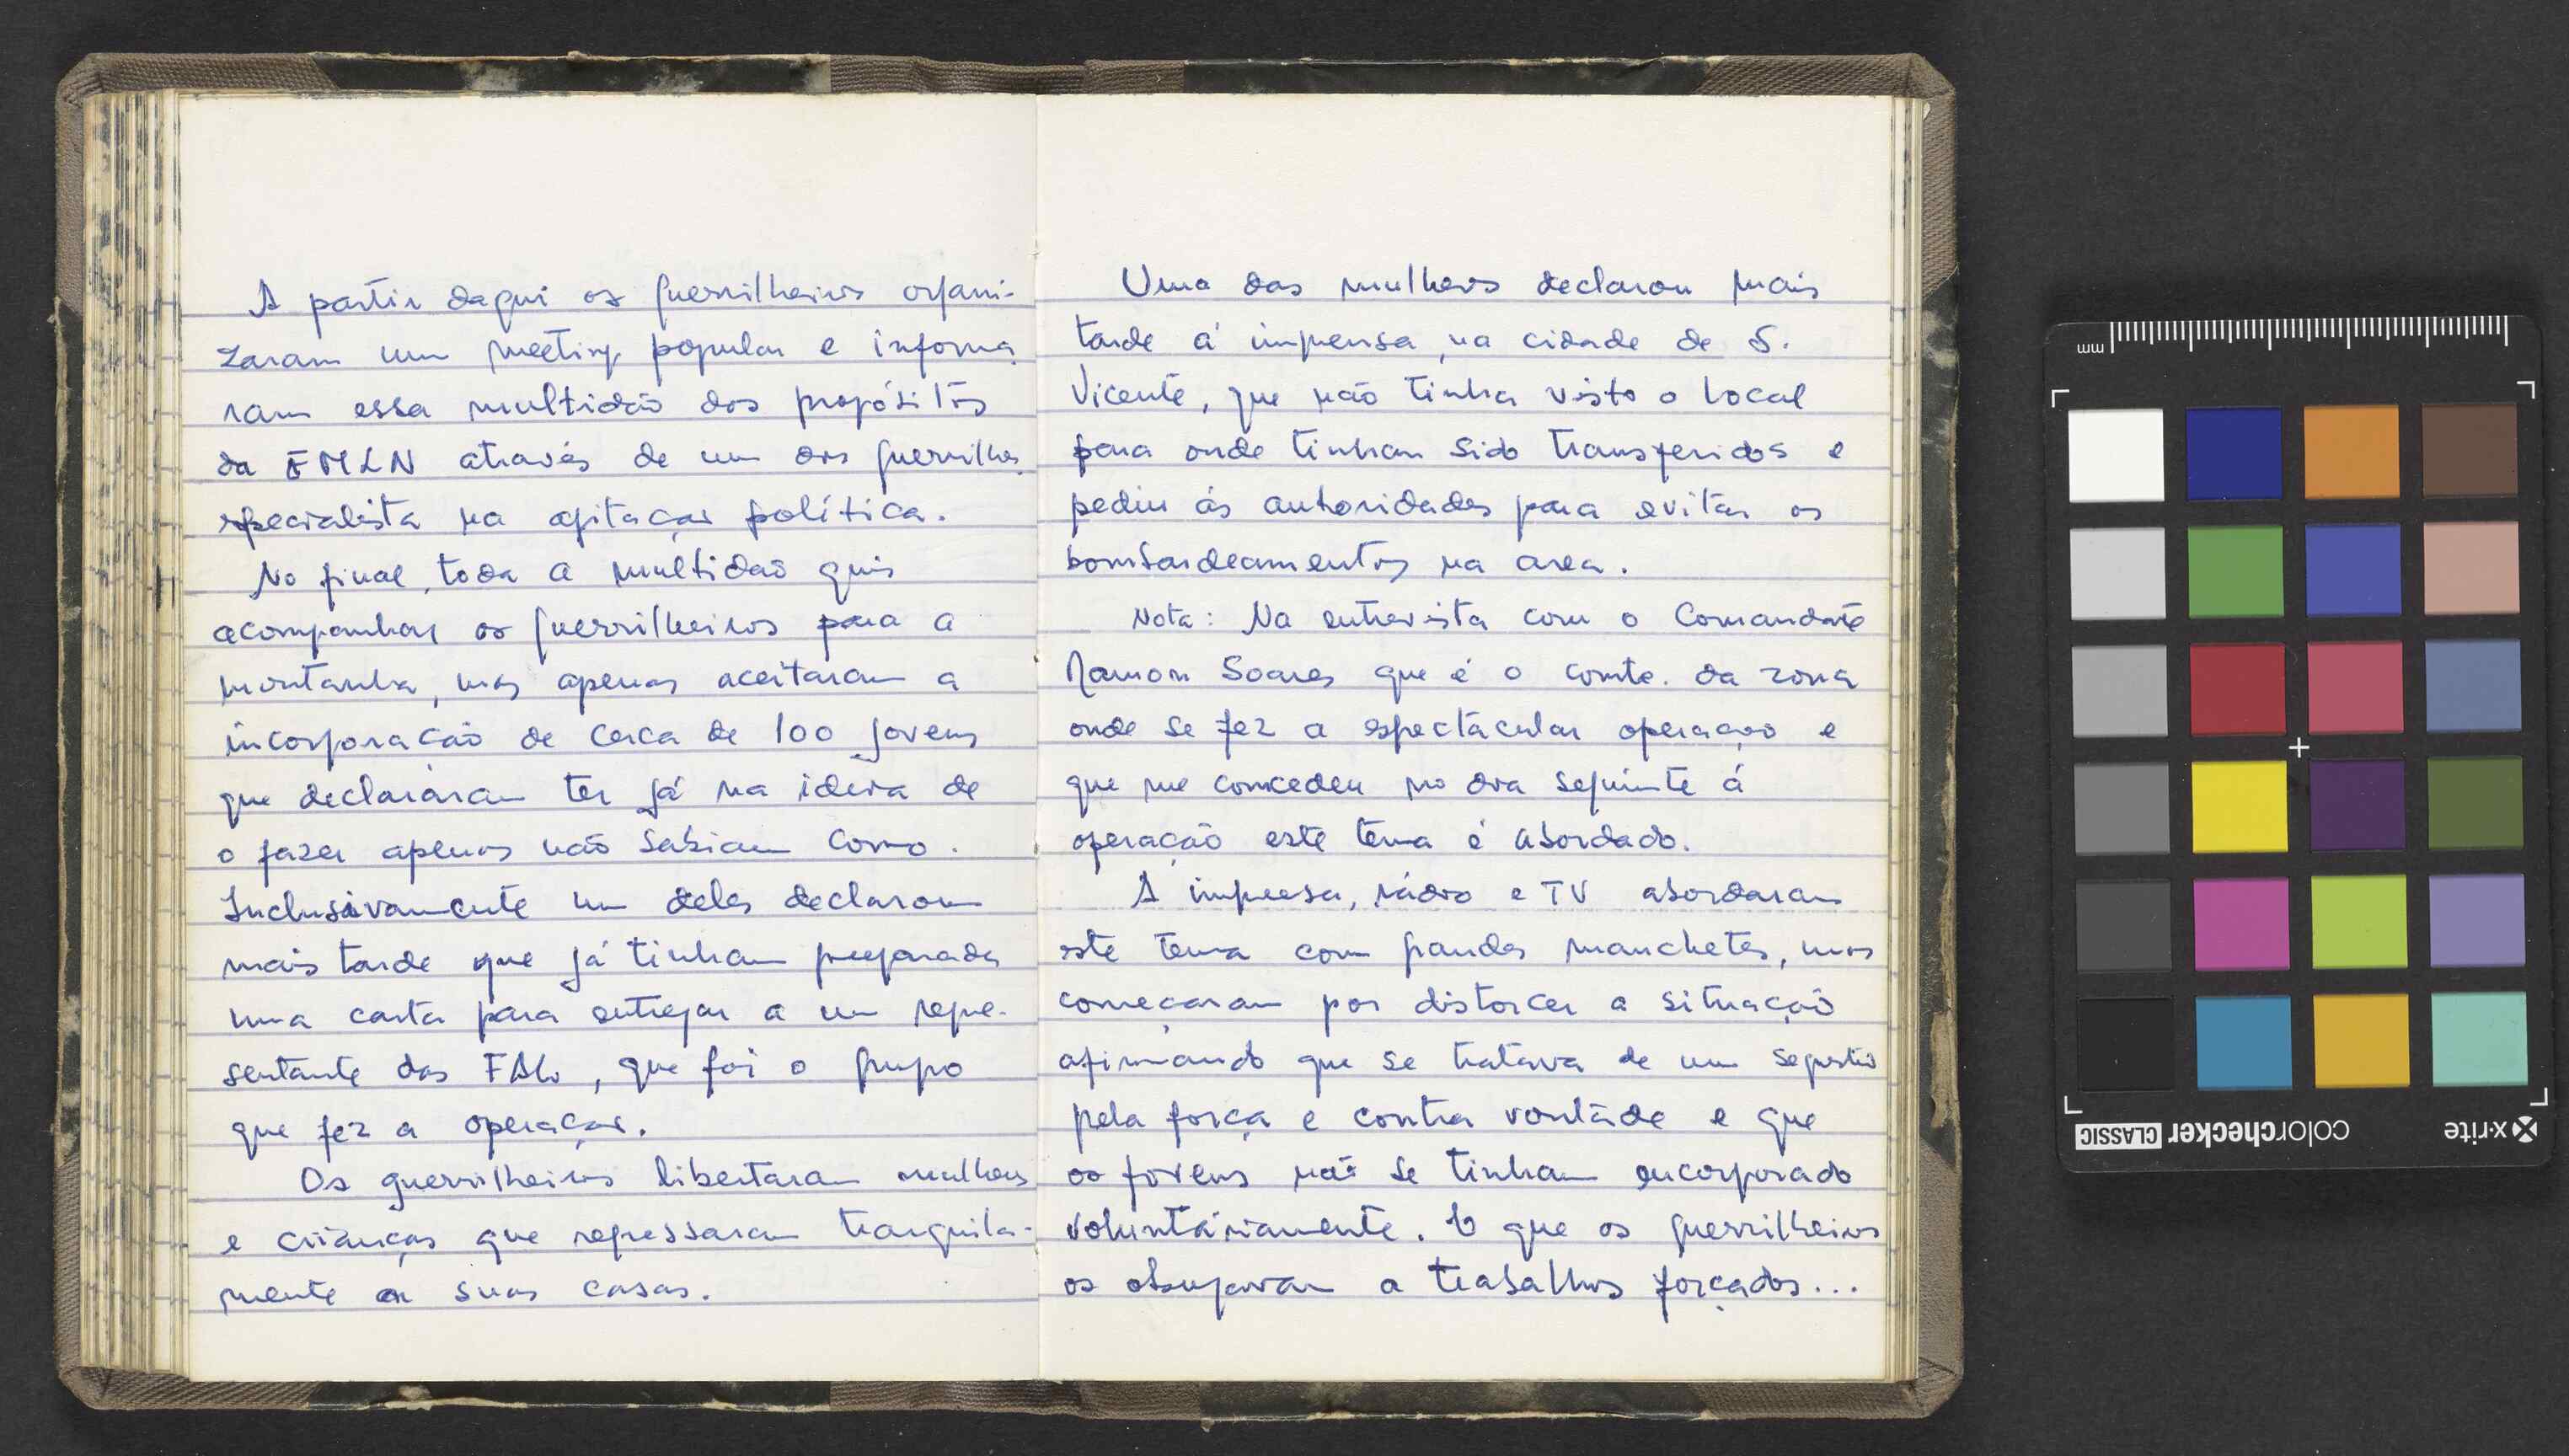 A partir daqui os guerrilheiros organi-
zaram um meeting popular e informa
ram essa multidão dos propósitos
da FMLN através de um dos guerrilhos
especialista na agitação política.
No final, toda a multidão quis
acompanhar os guerrilheiros para a
montanha, mas apenas aceitaram a
incorporação de cerca de 100 jovens
que declararam ter já na ideia de
o fazer apenas não sabiam como.
Inclusivamente um deles declarou
mais tarde que já tinham preparada
uma carta para entregar a um repre-
sentante das FAL, que foi o grupo
que fez a operação.
Os guerrilheiros libertaram mulheres
e crianças que regressaram tranquila-
mente a suas casas.
Uma das mulheres declarou mais
tarde á imprensa, na cidade de S.
Vicente, que não tinha visto o local
para onde tinham sido transferidos e
pediu ás autoridades para evitar os
bombardeamentos na area.
Nota: Na entrevista com o Comandante
Ramon Soares que é o comte. da zona
onde se fez a espectácular operação e
que me concedeu no dia seguinte á
operação este tema é abordado.
A imprensa, rádio e TV abordaram
este tema com grandes manchetes, mas
começaram por distorcer a situação
afirmando que se tratava de um sequestro
pela força e contra vontade e que
os jovens não se tinham encorporado
voluntáriamente. E que os guerrilheiros
os obrigavam a trabalhos forçados...
mm
x-rite
colorchecker CLASSIC